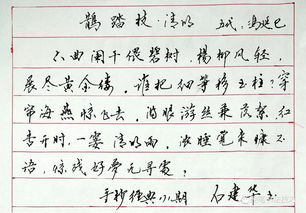 鹊踏枝·清明 五代:冯延巳
六曲阑干偎碧树,杨柳风轻,
展尽黄金缕。谁把钿筝移玉柱?穿
帘海燕惊飞去。满眼游丝兼落絮,红
杏开时,一霎清明雨。浓睡觉来慵不
语,惊残好梦无寻处。
手抄经典八期 石建华书